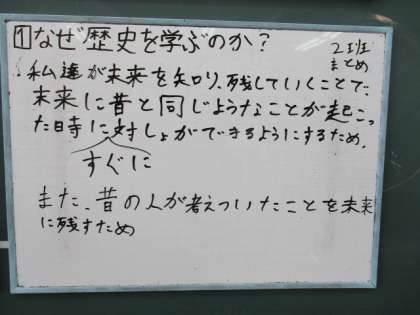 1 なぜ歴史を学ぶのか?
2班
まとめ
私達が未来を知り、残していくことで、
未来に昔と同じようなことが起こっ
た時に対しょができるようにするため。
すぐに
また、昔の人が考えついたことを未来
に残すため